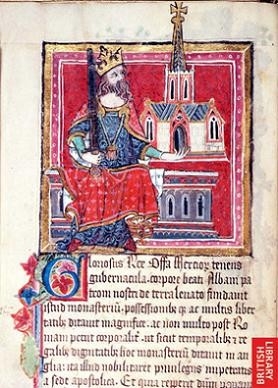 Gloriosus Rex Offa Merciorum tenens
gubernacula, corpore beati Albani pa
troni nostri de terra levato fundavit
istud monasterium, possessionibus ac multis liber
tatibus ditavit magnifice. ac non multo post Ro
mam petiit corporaliter, ut sicut temporalibus re
galis dignitatis hoc monasterium ditavit in an
glia, ita illud nobilitaret privilegiis impetratis
a sede apostolica. Et
BRITISH
LIBRARY